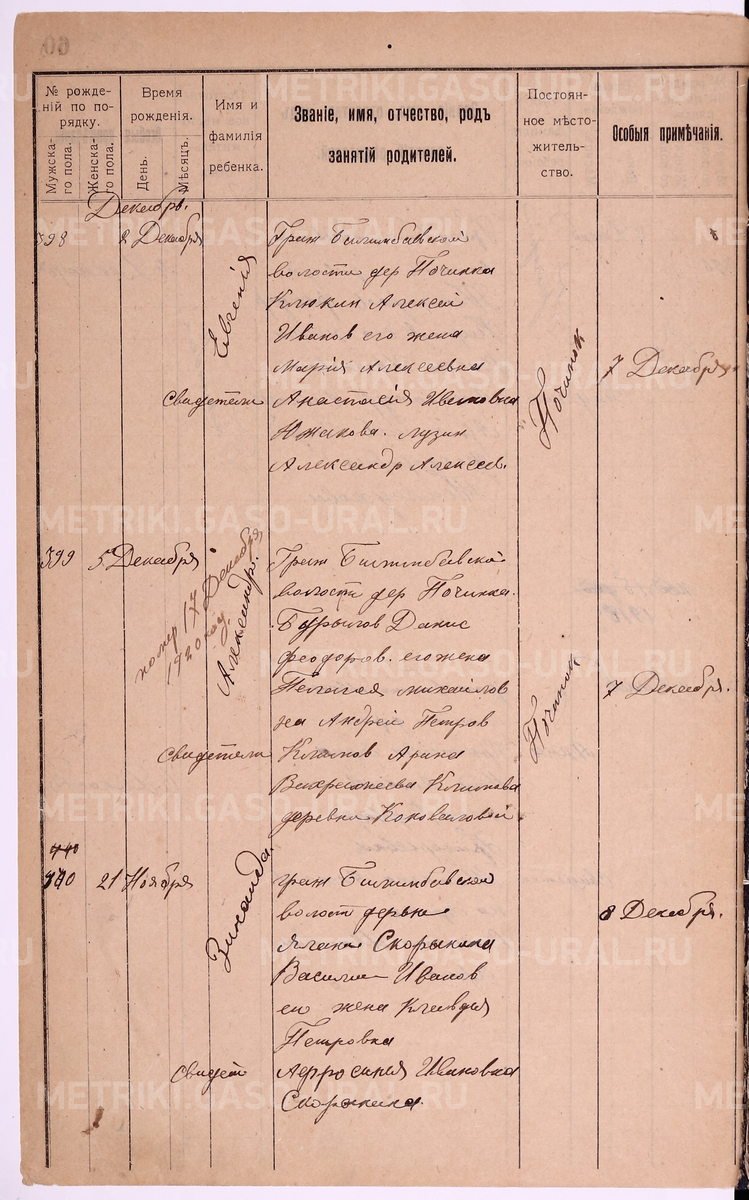 № рожде-
ній по по-
рядку.
Мужска-
го пола.
Женска-
го пола.
Время
рожденія.
День.
Мѣсяцъ.
Имя и
фамилія
ребенка.
Званіе, имя, отчество, родъ
занятій родителей.
Постоян-
ное мѣсто-
жительс-
ство.
Особыя примѣчанія.
Декабрь.
398
2 Декабря
Евгенія
Граж Билимбавской
волости дер Починка
Клюкин Алексей
Иванов его жена
Мария Алексеевна
Свидетели Анастасія Ивановна
Южакова. Лузин
Александр Алексеев.
Починок
7 Декабря
399
5 Декабря
помер 17 Декабря
1920 год.
Александр.
Граж Билимбавской
волости дер Починка.
Бурылов Данис
Феодоров. его жена
Пелагея михайлов
на Андрей Петров
Свидетели Климов Арина
Климова
деревни Коноваловой
Починок
7 Декабря.
440
21 Ноября
Зинаида.
граж Билимбавской
волост
Скорынина
Василий Иванов
ею жена Клавдия
Петровна
Свидет Афросиния Ивановна
8 Декабря.
METRIKI.GASO-URAL.RU